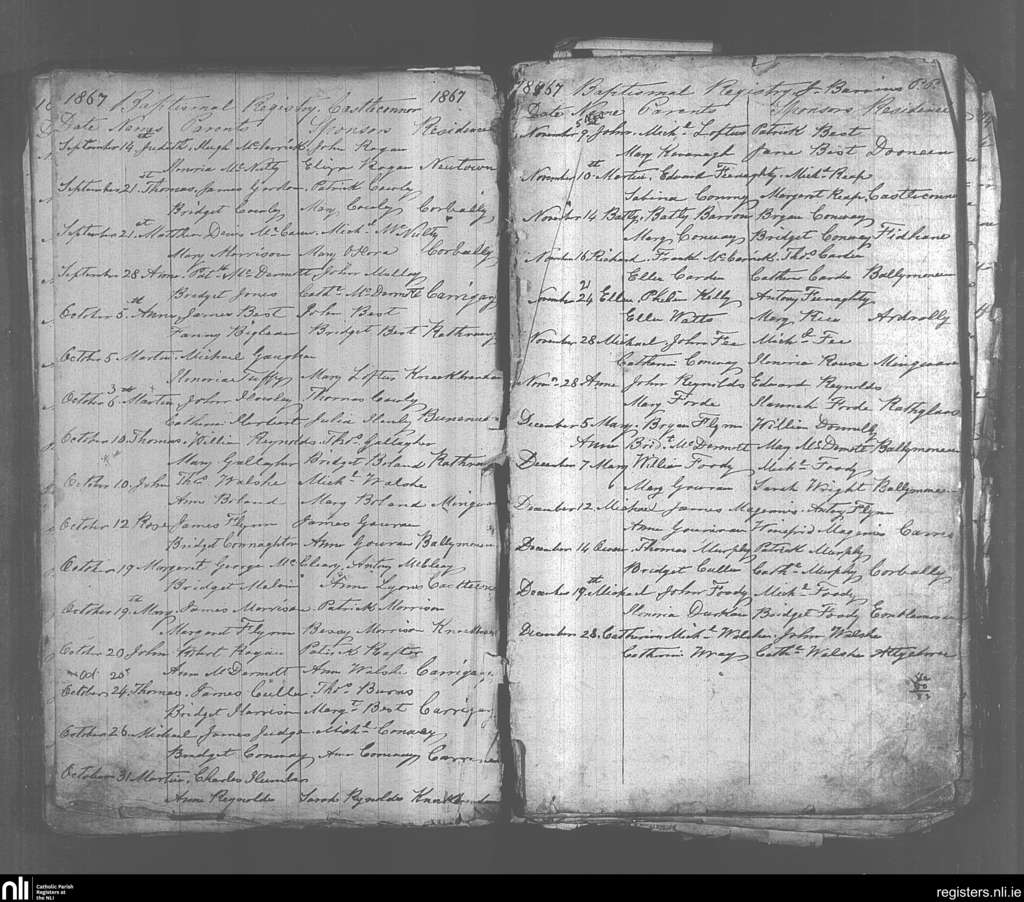 1867 Baptismal Registry. Castleconnor 1867
Date Names Parents Sponsors Residence
September 14th Judith, Hugh McKerrick John Regan
Honoria McNulty Eliza Regan Newtown
September 21st Thomas, James Gordon, Patrick Cowley
Bridget Cowley Mary Cowley Corbally
September 21st Matthew Denis McCawn Michl McNulty
Mary Morrison Mary OHora Corbally
September 28 Anne, Patk McDermott John Mulloy
Bridget Jones Cathe McDermott Carrigans
October 5th Anne, James Best John Best
Fanny Bighean Bridget Best Rathmeeny
October 5 Martin Michael Gaughan
Honoria Tuffy Mary Loftus Knockbrack
October 5th Martin John Howley Thomas Cowley
Catherine Herbert Julia Healy Bunenee
October 10 Thomas, William Reynolds Thos Gallagher
Mary Gallagher Bridget Boland Rathmeeny
October 10 John Thos Walshe Michl Walshe
Ann Boland Mary Boland Minguan
October 12 Rose James Flynn James Gowran
Bridget Connaghton Anne Gowran Ballymoneen
October 19 Margaret George McCleary, Antony McCleary
Bridget Melvin Anne Lyons Castleconnor
October 19th Mary James Morrison, Patrick Morrison
Margaret Flynn Bessy Morrison
October 20 John Robert Regan Patrick Rafter
Ann McDermott Ann Walsh Carrigans
October 24 Thomas, James Cullen Thos Burns
Bridget Harrison Margt Best Carrigans
October 26 Michael James Judge Michl Conway
Bridget Conway Ann Conway Carrane
October 31 Martin, Charles
Anne Reynolds Sarah Reynolds
1867 Baptismal Registry J. Barrins P.P.
Date Name Parents Sponsors Residence
November 9 John, Michl Loftus Patrick Best
Mary Kavanagh Jane Best Dooneen
November 10 Martin, Edward Feenaghty, Michl Reap
Sabina Conway Margaret Reap, Castleconnor
November 14 Batty, Batty Barron Bryan Conway
Mary Conway Bridget Conway
November 16 Richard, Frank McCarrick Thos Carden
Ellen Carden Catherine Carden Ballymoneen
November 24 Ellen Philip Kelly Antony Feenaghty
Ellen Watts Mary Rice Ardvolly
November 28 Michael John Fee Michl Fee
Catherine Conway Honoria Rouse Minguan
Novr 28 Anne John Reynolds Edward Reynolds
Mary Forde Hannah Forde Rathglass
December 5 Mary, Bryan Flynn William Donnelly
Anne Bridt McDermott May McDermott Ballymoneen
December 7 Mary William Foody Michl Foody
Mary Gowran Sarah Wright Ballymoneen
December 12 Michael James Magennis, Antony Flyn
Anne Gowran Winifred Magennis Carrane
December 14 Thomas Murphy Patrick Murphy
Bridget Cullen Cathe Murphy Corbally
December 19th Michael John Foody Michl Foody
Honoria Durkan Bridget Foody
December 28 Catherine Michl Walshe, John Walshe
Catherine Wray Cathe Walshe
nli
Catholic Parish
Registers at
the NLI
registers.nli.ie